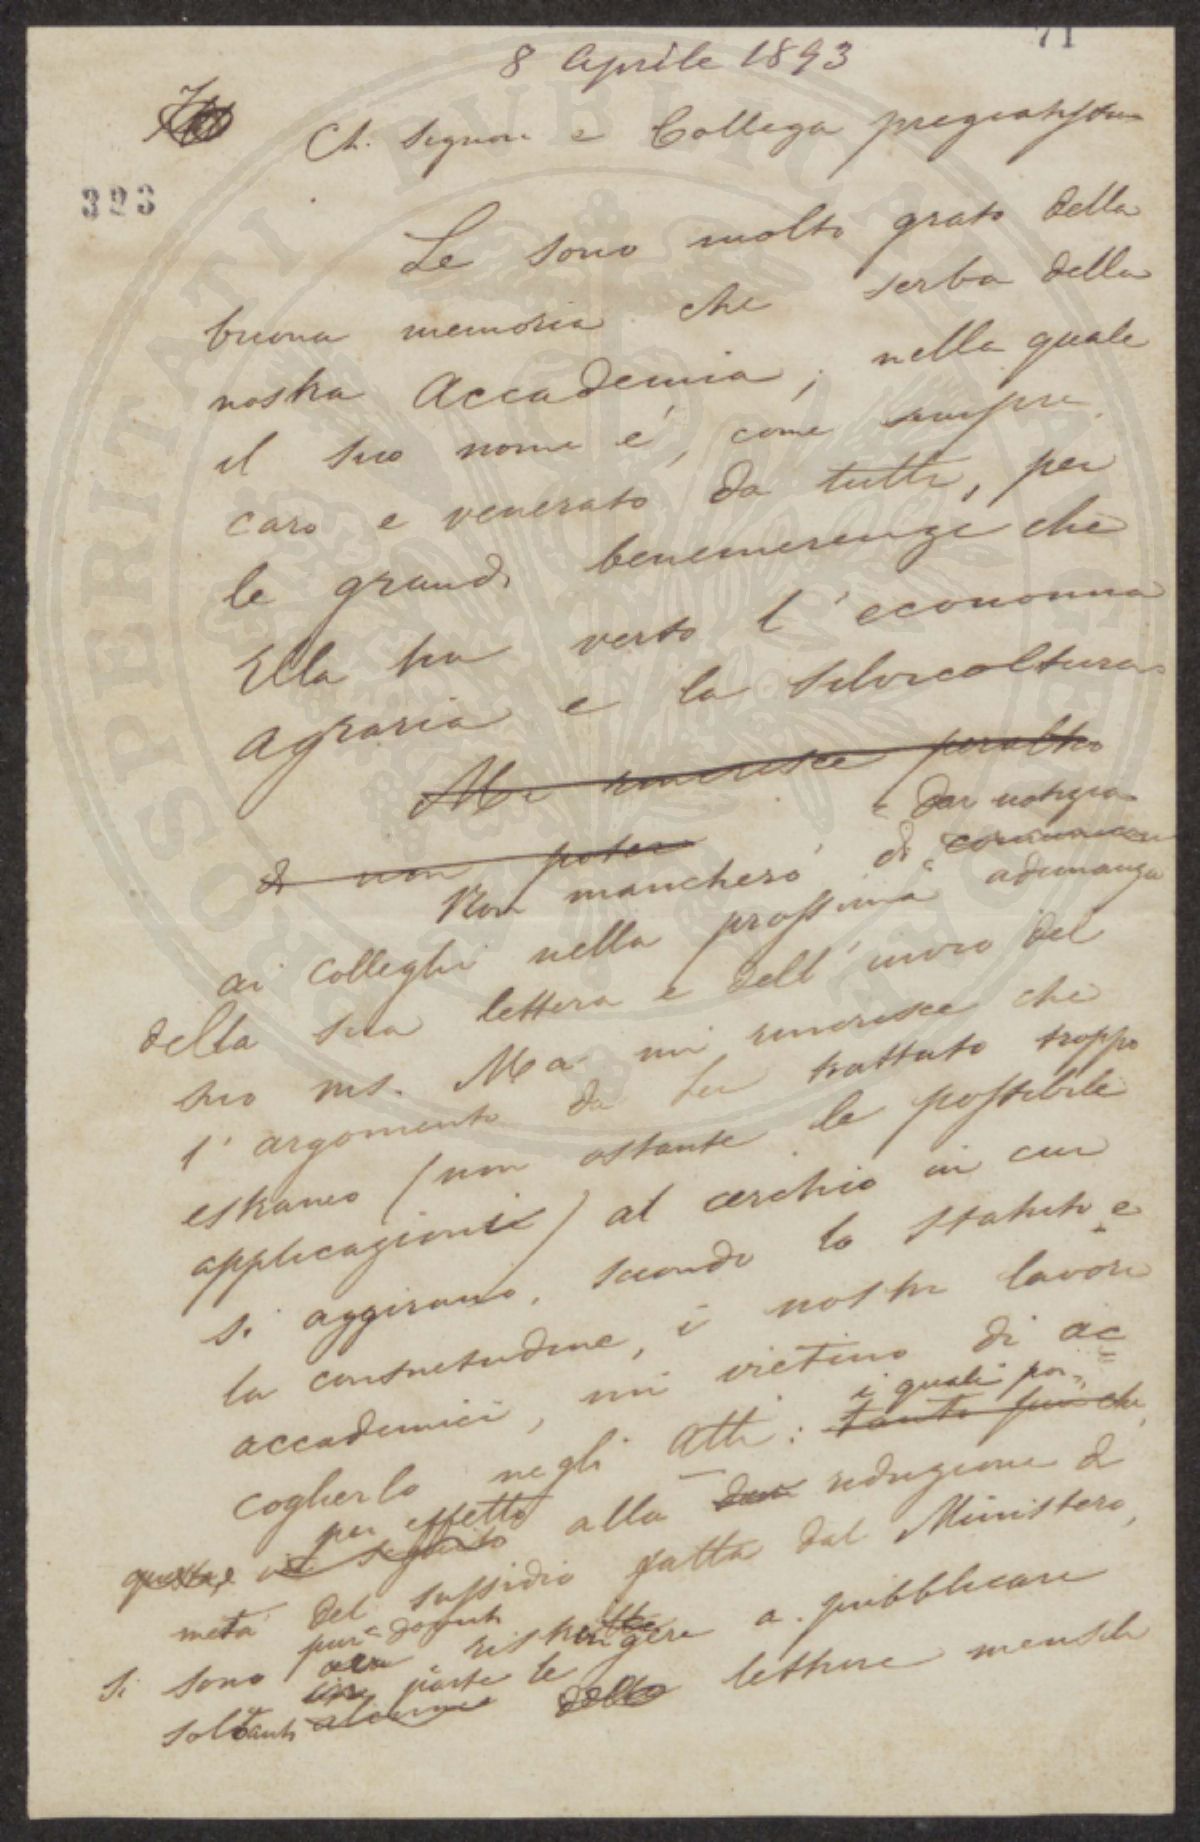 71
8 Aprile 1893
Ch. Signore e Collega pregiatissimo
323
Le sono molto grato della
buona memoria che serba della
nostra Accademia, nella quale
il suo nome è, come sempre,
caro e venerato da tutti, per
le grandi benemerenze che
Ella ha verso l'economia
agraria e la silvicoltura.
Mi rincresce peraltro
di non potere
dar notizia
Non mancherò di comunicare
ai Colleghi nella prossima adunanza
della sua lettera e dell'invio del
suo ms. Ma mi rincresce che
l'argomento da Lei trattato troppo
estraneo (non ostante le possibili
applicazioni) al cerchio in cui
si aggirano, secondo lo Statuto e
la consuetudine, i nostri lavori
accademici, mi vietino di ac=
coglierlo negli Atti: tanto più che
i quali por
per effetto
questa, in seguito alla reduzione di
metà del sussidio fatta dal Ministero,
si sono pur dovuti restringere a pubblicare
in parte le
soltanto alcune delle letture mensili